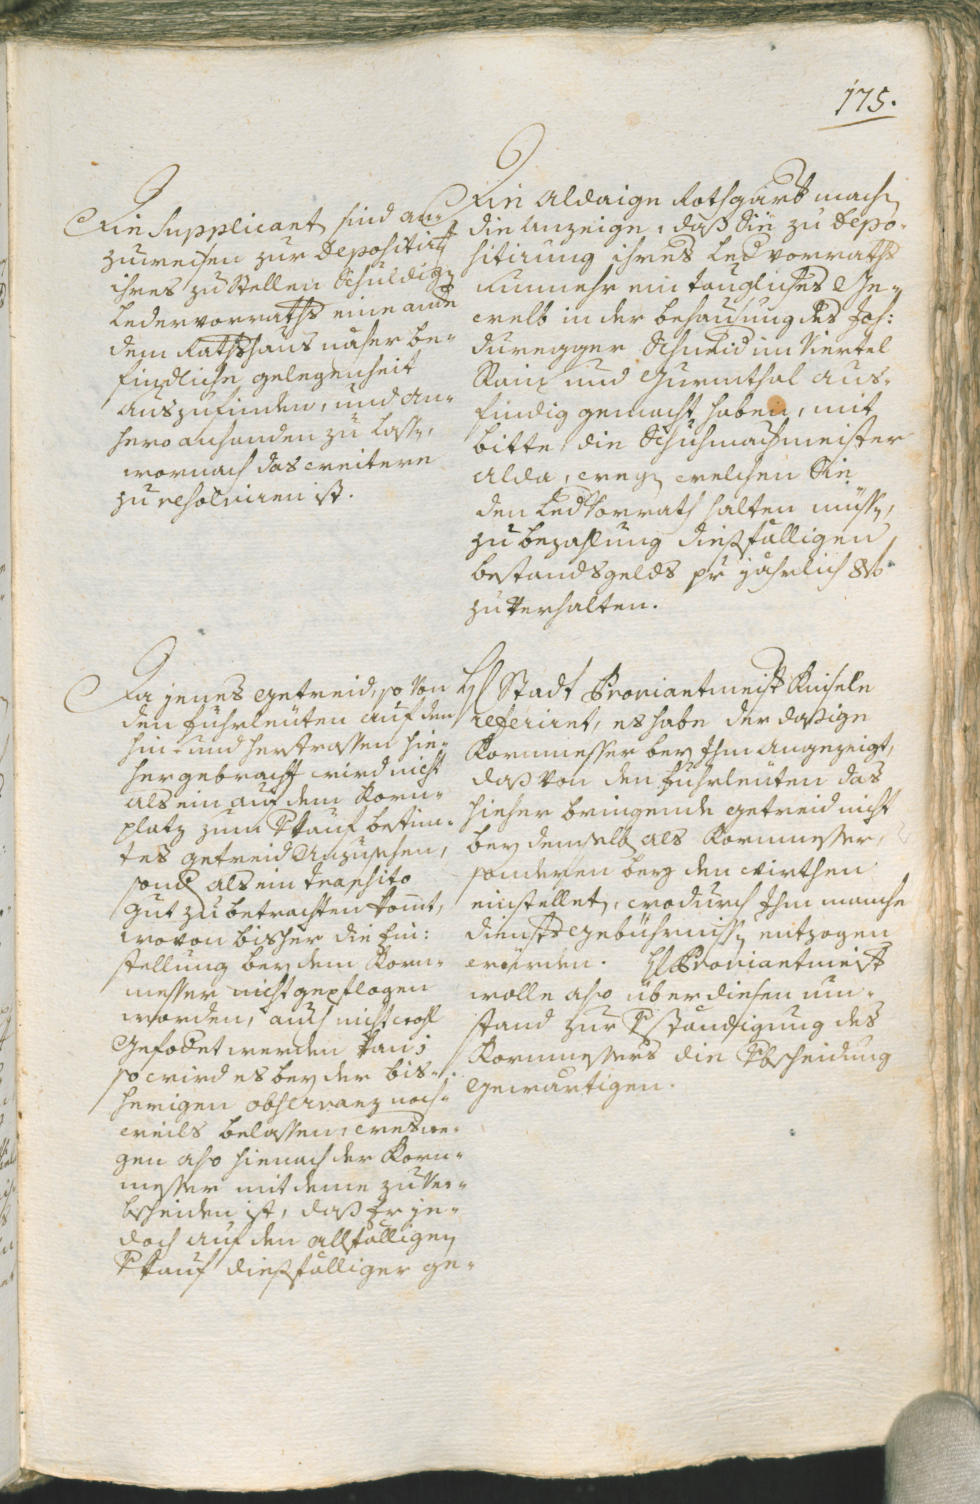 175.
Die Supplicanten sind an-
zuweisen zur Depositirung
ihres zu stellen schuldigen
Ledervorraths eine ande
dem Rathshaus näher be-
findliche gelegenheit
auszufinden, und an-
hero anhanden zu lassn,
wornach das weitere
zu resolviren ist.
Die alldaige Rothgärb machn
die anzeige, daß Sie zu Depo-
sitirung ihres Ledvorraths
nunmehr ein taugliches Ge-
welb in der behausung des Joh:
Duregger Schmid im Viertel
Rain und Gurnthal aus-
findig gemacht haben, mit
bitte die Schuhmachmeister
alda, wegn welchen Sie
den Ledvorrath halten müssn,
zu bezahlung diesfälligen
bestandsgelds pr jährlich 8 f
zuverhalten.
Da jenes getreid, so von
den fuhrleuten auf den
hin und herstrassen hie-
hergebracht wird nicht
als ein auf dem Korn-
platz zum Vkauf bestim-
tes getreid anzusehen,
sond als ein transito
gut zu betrachten komt,
wovon bisher die Ein:
stellung bey dem Korn-
messer nicht gepflogen
worden, auch nicht wohl
gefodet werden kan;
so wird es bey der bis-
herigen observanz noch-
weils belassen, weswe-
gen also hienach der Korn-
messer mit deme zuver-
bscheiden ist, daß Er je-
doch auf den allfälligen
Vkauf diesfälliger ge-
H Stadt Proviantmeistr Kuisele
referiret, es habe der dasige
Kornmesser bey Ihm angezeigt,
daß von den fuhrleuten das
hieher bringende getreid nicht
bey demselbn als Kornmesser,
sonderen bey den wirthen
einstellet, wodurch Ihm manche
dienstsgebührnissn entzogen
wurden. H Proviantmeistr
wolle also über diesen um-
stand zur Vständigung des
Kornmessers die Vbscheidung
gewärtigen.